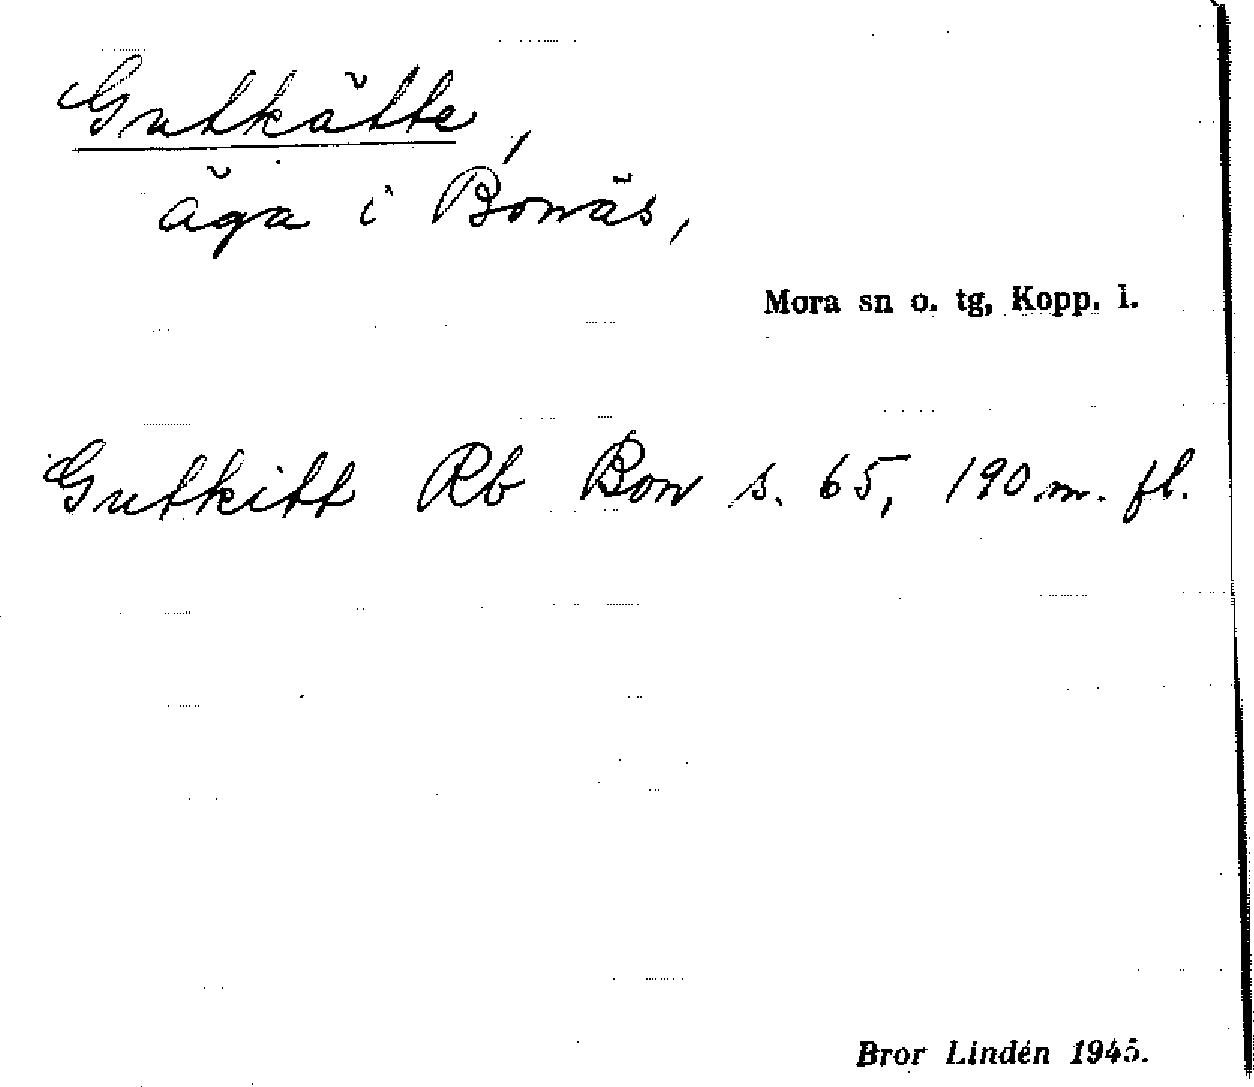 Gutkätte,
äga i Bonäs,
Mora sn o. tg, Kopp. l.
Gutkitt Rb Bon s. 65, 190 m. fl.
Bror Lindén 1945.